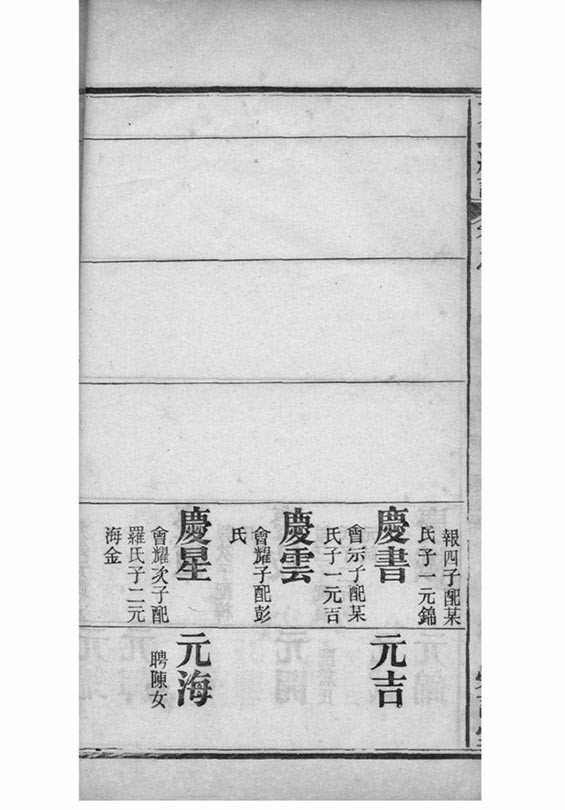 報四子配某
氏子一元錦
慶書
會示子配某
氏子一元吉
慶雲
會耀子配彭
氏
慶星
會耀次子配
羅氏子二元
海金
元吉
元海
聘陳女